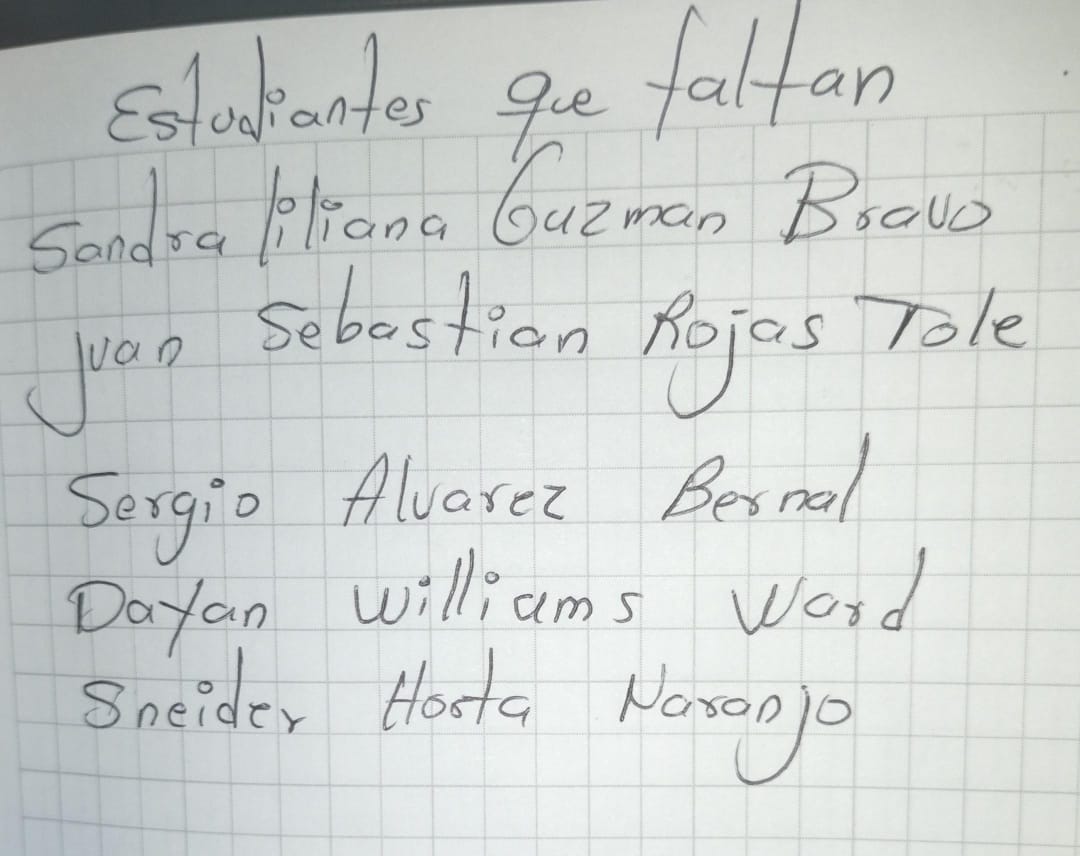 Estudiantes que faltan
Sandra liliana Guzman Bravo
Juan Sebastian Rojas Tole
Sergio Alvarez Bernal
Dayan Williams Ward
Sneider Horta Naranjo